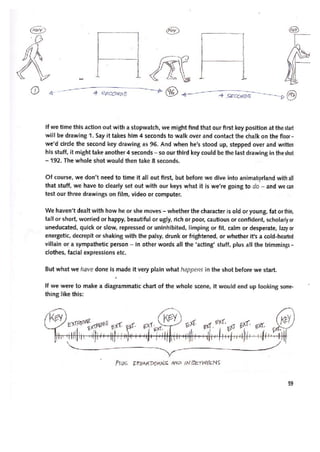 KEY KEY KEY
1 4 SECONDS 96 4 SECONDS 192
If we time this action out with a stopwatch, we might find that our first key position at the start
will be drawing 1. Say it takes him 4 seconds to walk over and contact the chalk on the floor –
we'd circle the second key drawing as 96. And when he's stood up, stepped over and written
his stuff, it might take another 4 seconds – so our third key could be the last drawing in the shot
– 192. The whole shot would then take 8 seconds.
Of course, we don't need to time it all out first, but before we dive into animatorland with all
that stuff, we have to clearly set out with our keys what it is we're going to do – and we can
test our three drawings on film, video or computer.
We haven't dealt with how he or she moves – whether the character is old or young, fat or thin,
tall or short, worried or happy, beautiful or ugly, rich or poor, cautious or confident, scholarly or
uneducated, quick or slow, repressed or uninhibited, limping or fit, calm or desperate, lazy or
energetic, decrepit or shaking with the palsy, drunk or frightened, or whether it's a cold-hearted
villain or a sympathetic person – in other words all the 'acting' stuff, plus all the trimmings –
clothes, facial expressions etc.
But what we have done is made it very plain what happens in the shot before we start.
If we were to make a diagrammatic chart of the whole scene, it would end up looking some-
thing like this:
KEY EXTREME EXTREME EXT. EXT. EXT. KEY EXT. EXT. EXT. EXT. EXT. EXT. KEY
PLUS BREAKDOWNS AND INBETWEENS
59